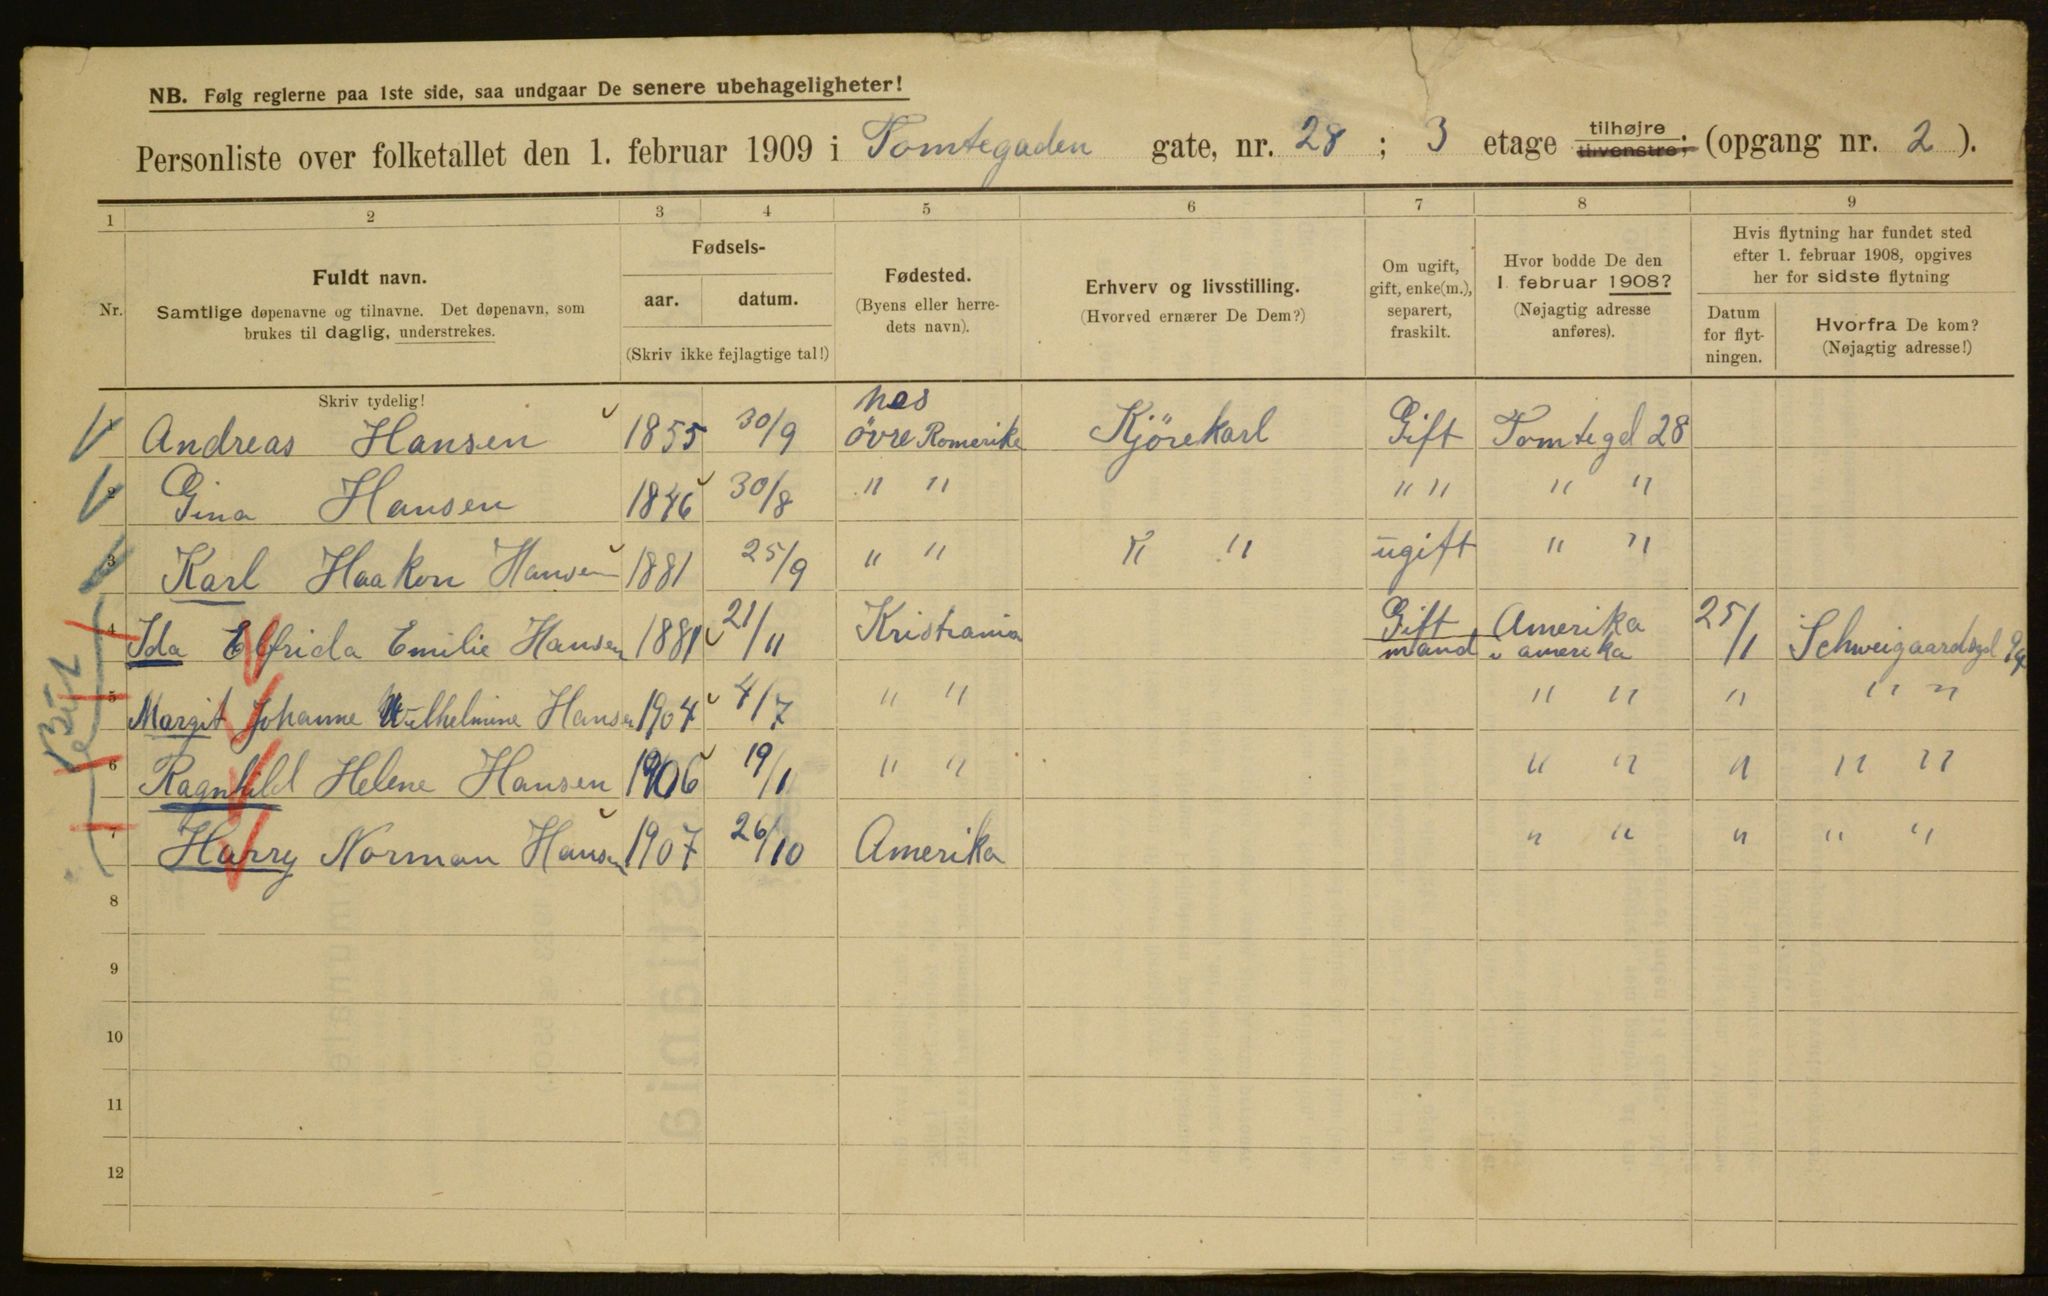 NB. Følg reglerne paa 1ste side, saa undgaar De senere ubehageligheter!
Personliste over folketallet den 1. februar 1909 i Tomtegaden gate, nr. 28 ; 3 etage tilhøjre tilvenstre; (opgang nr. 2 ).
1 2 3 4 5 6 7 8 9
Nr.
Fuldt navn.
Samtlige døpenavne og tilnavne. Det døpenavn, som
brukes til daglig, understrekes.
Fødsels-
aar. datum.
(Skriv ikke fejlagtige tal!)
Fødested.
(Byens eller herre-
dets navn).
Erhverv og livsstilling.
(Hvorved ernærer De Dem?)
Om ugift,
gift, enke(m.),
separert,
fraskilt.
Hvor bodde De den
1. februar 1908?
(Nøjagtig adresse
anføres).
Hvis flytning har fundet sted
efter 1. februar 1908, opgives
her for sidste flytning
Datum
for flyt-
ningen.
Hvorfra De kom?
(Nøjagtig adresse!)
Skriv tydelig!
nes
1 Andreas Hansen 1855 30/9 övre Romerike Kjörekarl Gift Tomtegd 28
2 Gina Hansen 1846 30/8 " " " " " "
3 Karl Haakon Hansen 1881 25/9 " " " " ugift " "
4 Ida Elfrida Emilie Hansen 1881 21/11 Kristiania Gift Amerika 25/1 Schweigaardsgd
mand i amerika
5 Margit Johanne Wilhelmine Hansen 1904 4/7 " " " " " " "
6 Ragnhild Helene Hansen 1906 19/11 " " " " " " "
7 Harry Norman Hansen 1907 26/10 Amerika " " " " "
8
9
10
11
12